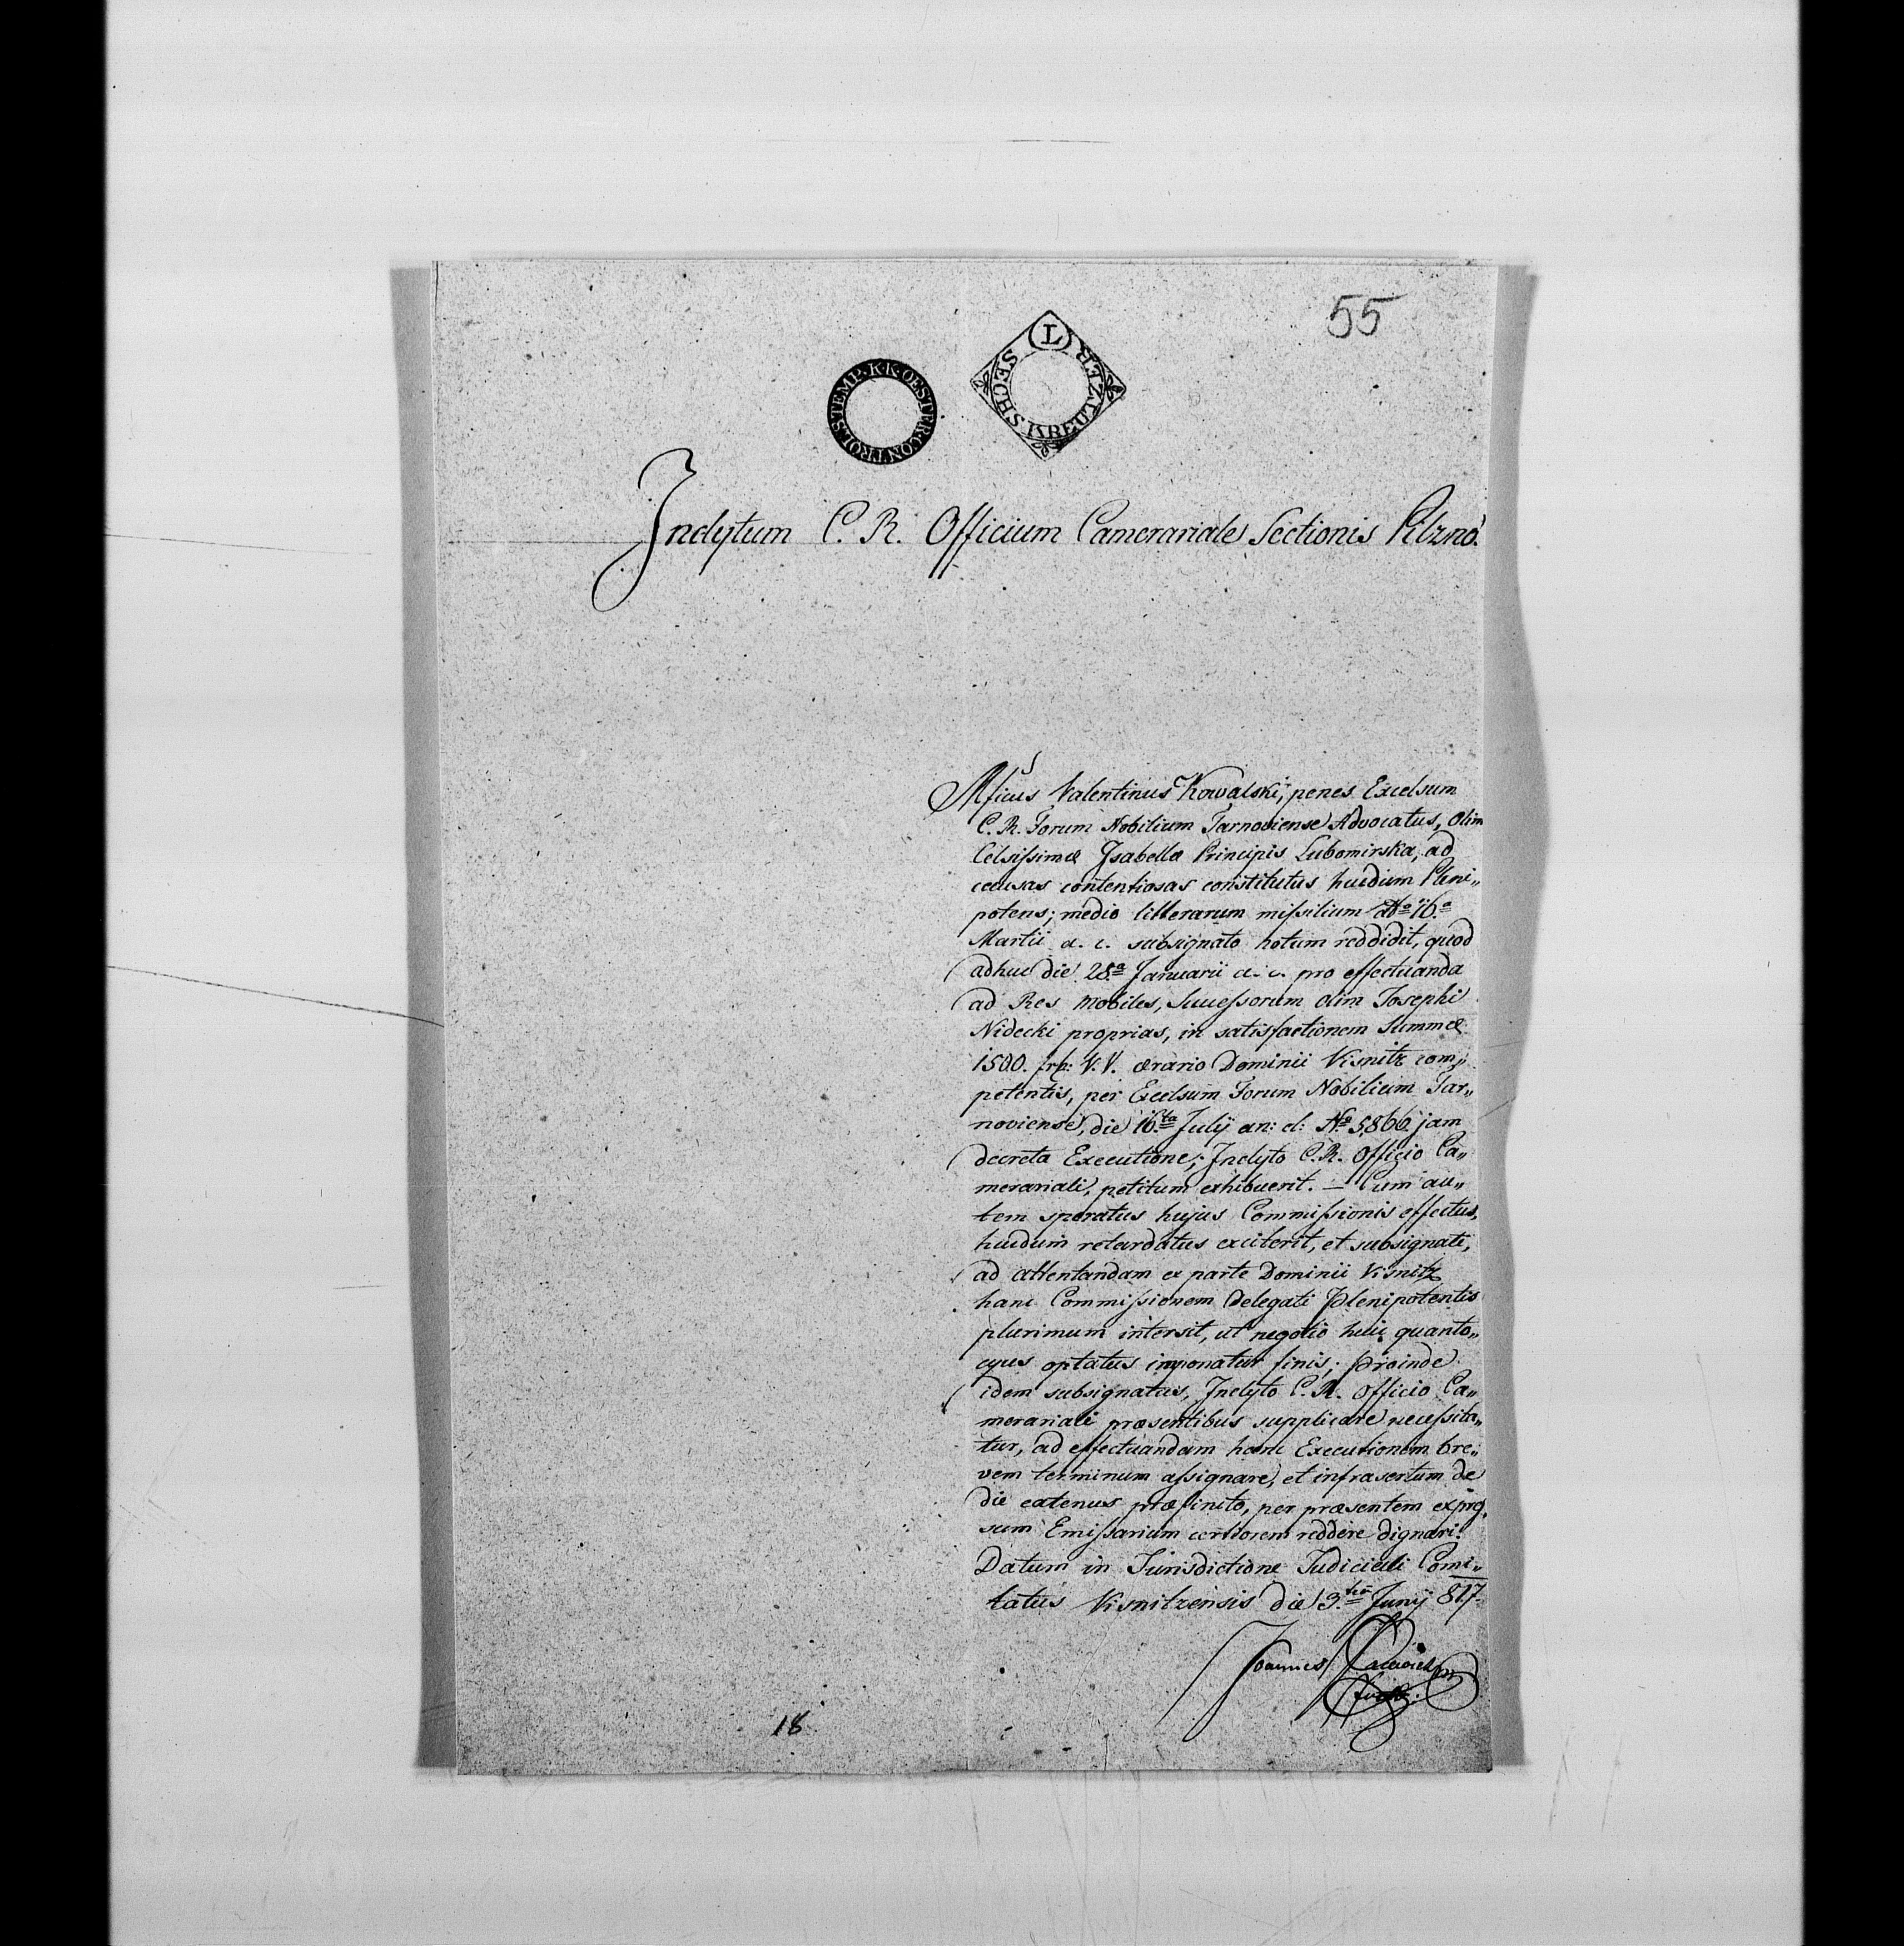 55
K.K. OESTER. CONTROL. STEMP.
(T) SECHS KREUTZER
Inclytum C. R. Officium Camerariale Sectionis Pilzno.
Mficus Valentinus Kowalski, penes Excelsum
C. R. Forum Nobilium Tarnoviense Advocatus, Olim
Celsissimæ Isabellæ Principis Lubomirska, ad
causas contentiosas constitutus hucdum Pleni„
potens; medio litterarum missilium ddº 16.ª
Martii a. c. subsignato notum reddidit, quod
adhuc die 28.ª Januarii a. c. pro effectuanda
ad Res mobiles, Successorum olim Josephi
Nidecki proprias, in satisfactionem Summæ
1500. frh: V. V. ærario Dominii Visnitz com„
petentis, per Excelsum Forum Nobilium Tar„
noviense, die 16.ta July an: el: Nº 5,866 jam
decreta Executione; Inclyto C. R. Officio Ca„
merariali, petitum exhibuerit. — Cum au„
tem speratus hujus Commissionis effectus,
hucdum retardatus exciterit, et subsignati,
ad attentandam ex parte Dominii Visnitz
hanc Commissionem Delegati Plenipotentis
plurimum intersit, ut negotio huic quanto„
cyus optatus imponatur finis; proinde
idem subsignatus, Inclyto C. R. Officio Ca„
merariali præsentibus supplicare necessita„
tur, ad effectuandam hanc Executionem bre„
vem terminum assignare, et infrasertum de
die eatenus præfinito, per præsentem expres
sum Emissarium certiorem reddere dignari.
Datum in Jurisdictione Judiciali Comi„
tatus Visnitzensis die 3.tia Junij 817.
Joannes
18